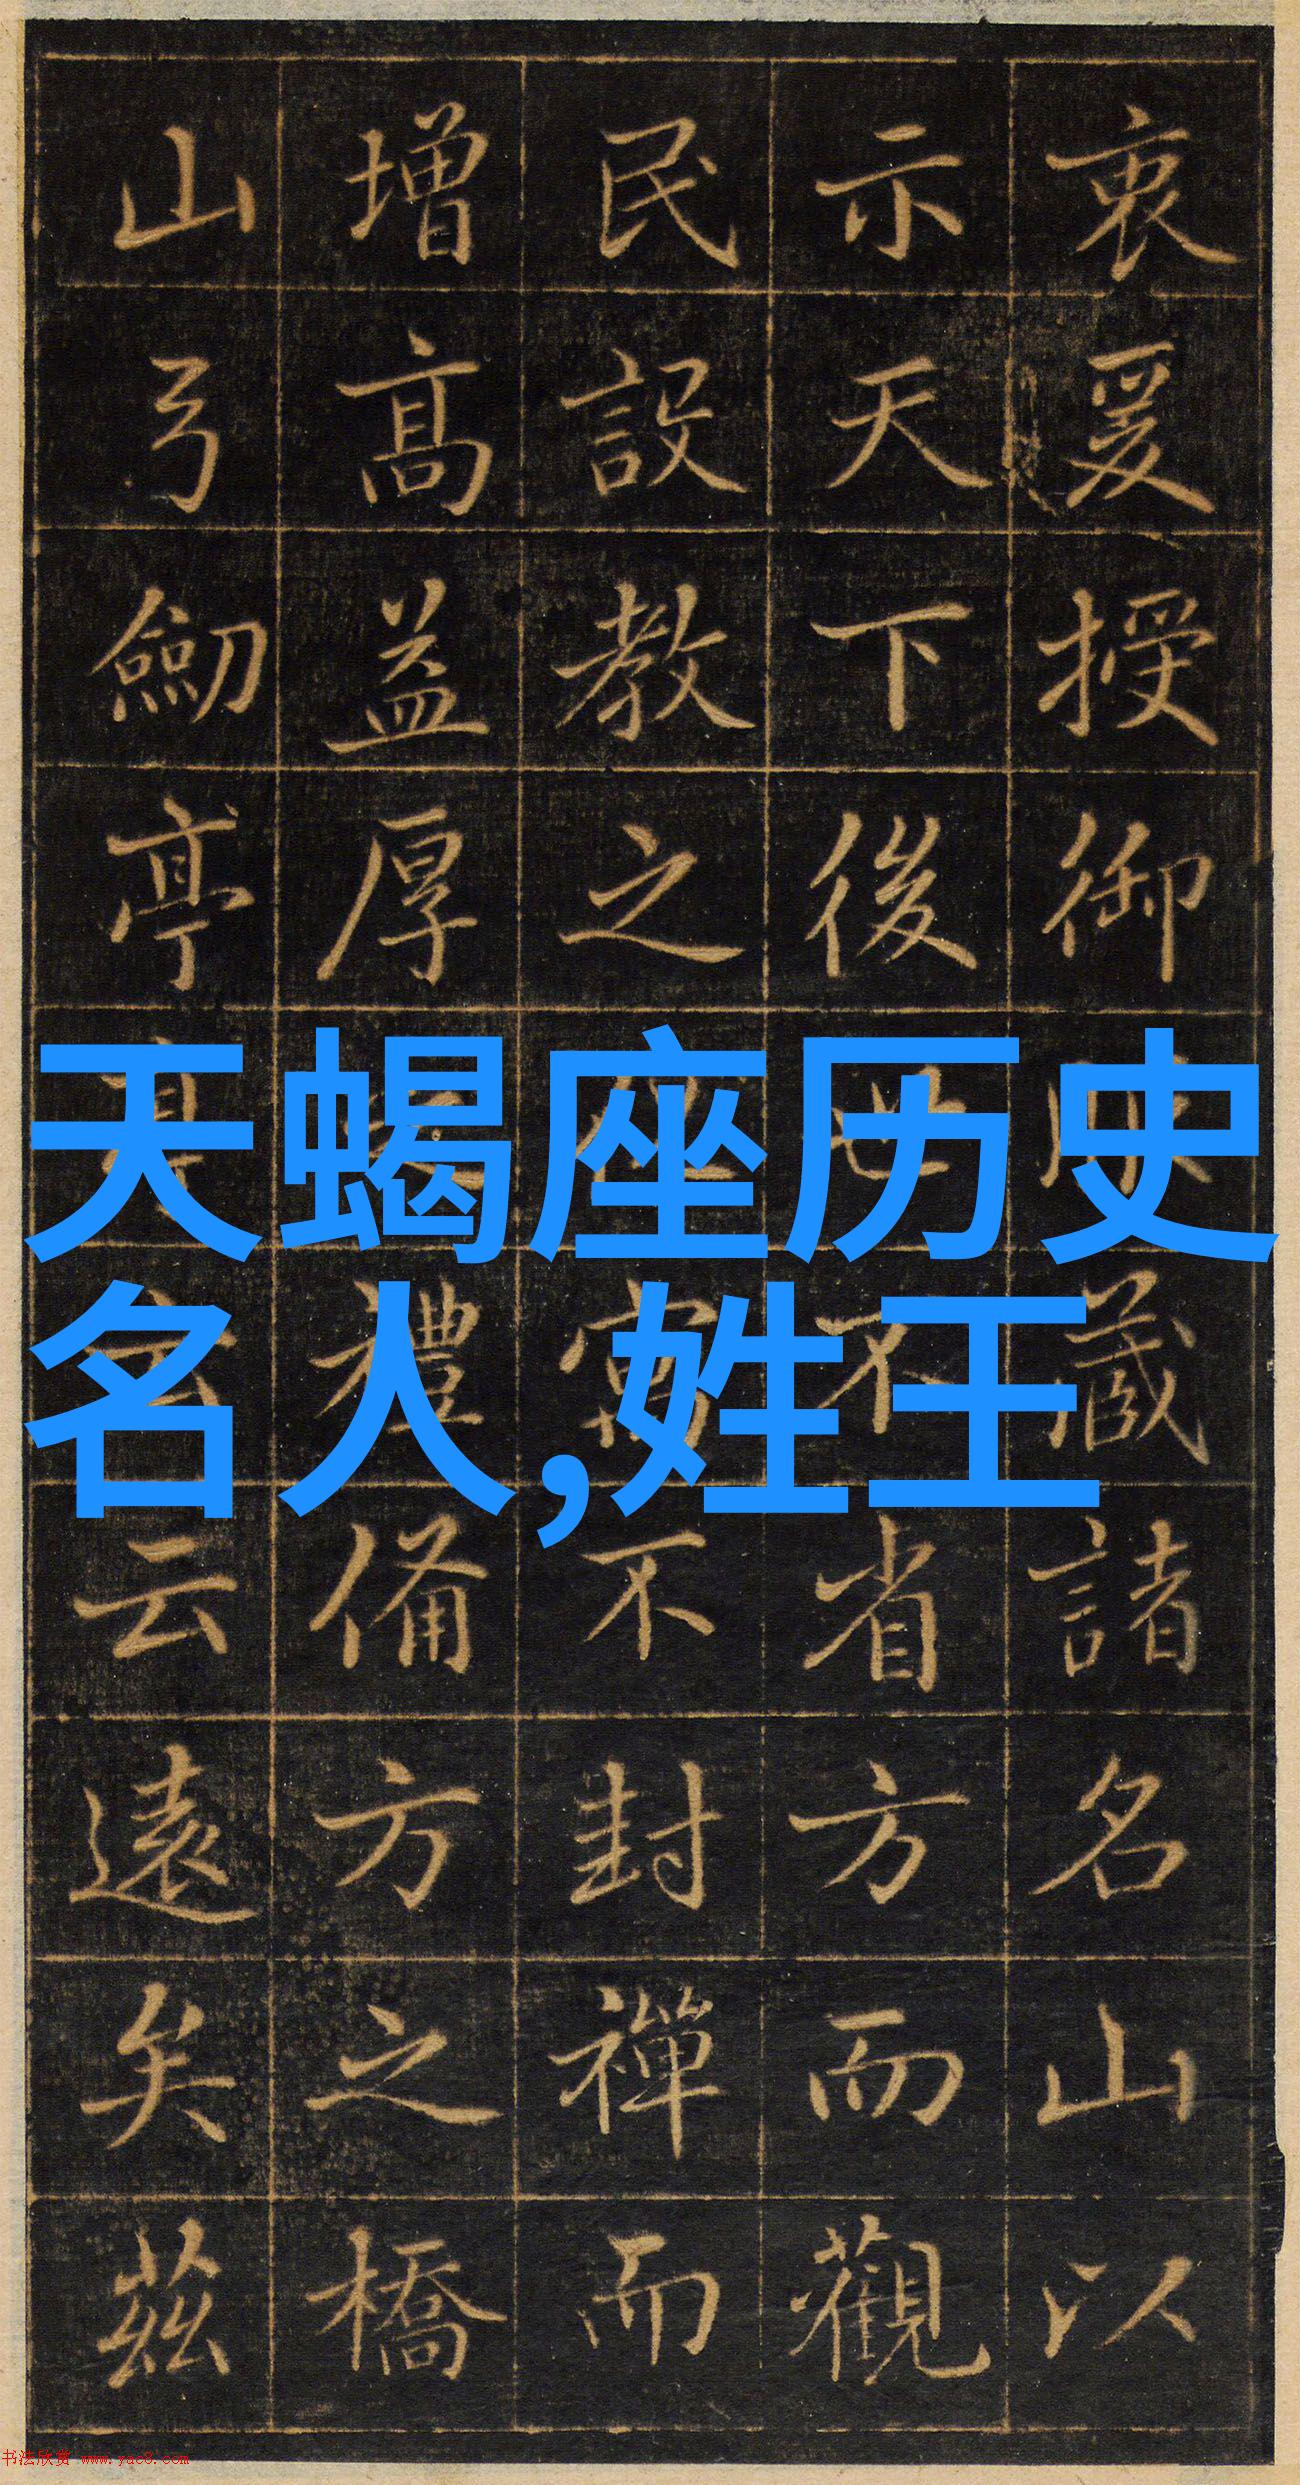 衷爰授御
藏諸名山以
示天下後世不省方而觀
民設教之
不封禪而
增高益厚
禮備方之橋
山弓劒亭
云遠矣茲
天蝎座历史
名人,姓王
书法欣赏 www.yac8.com